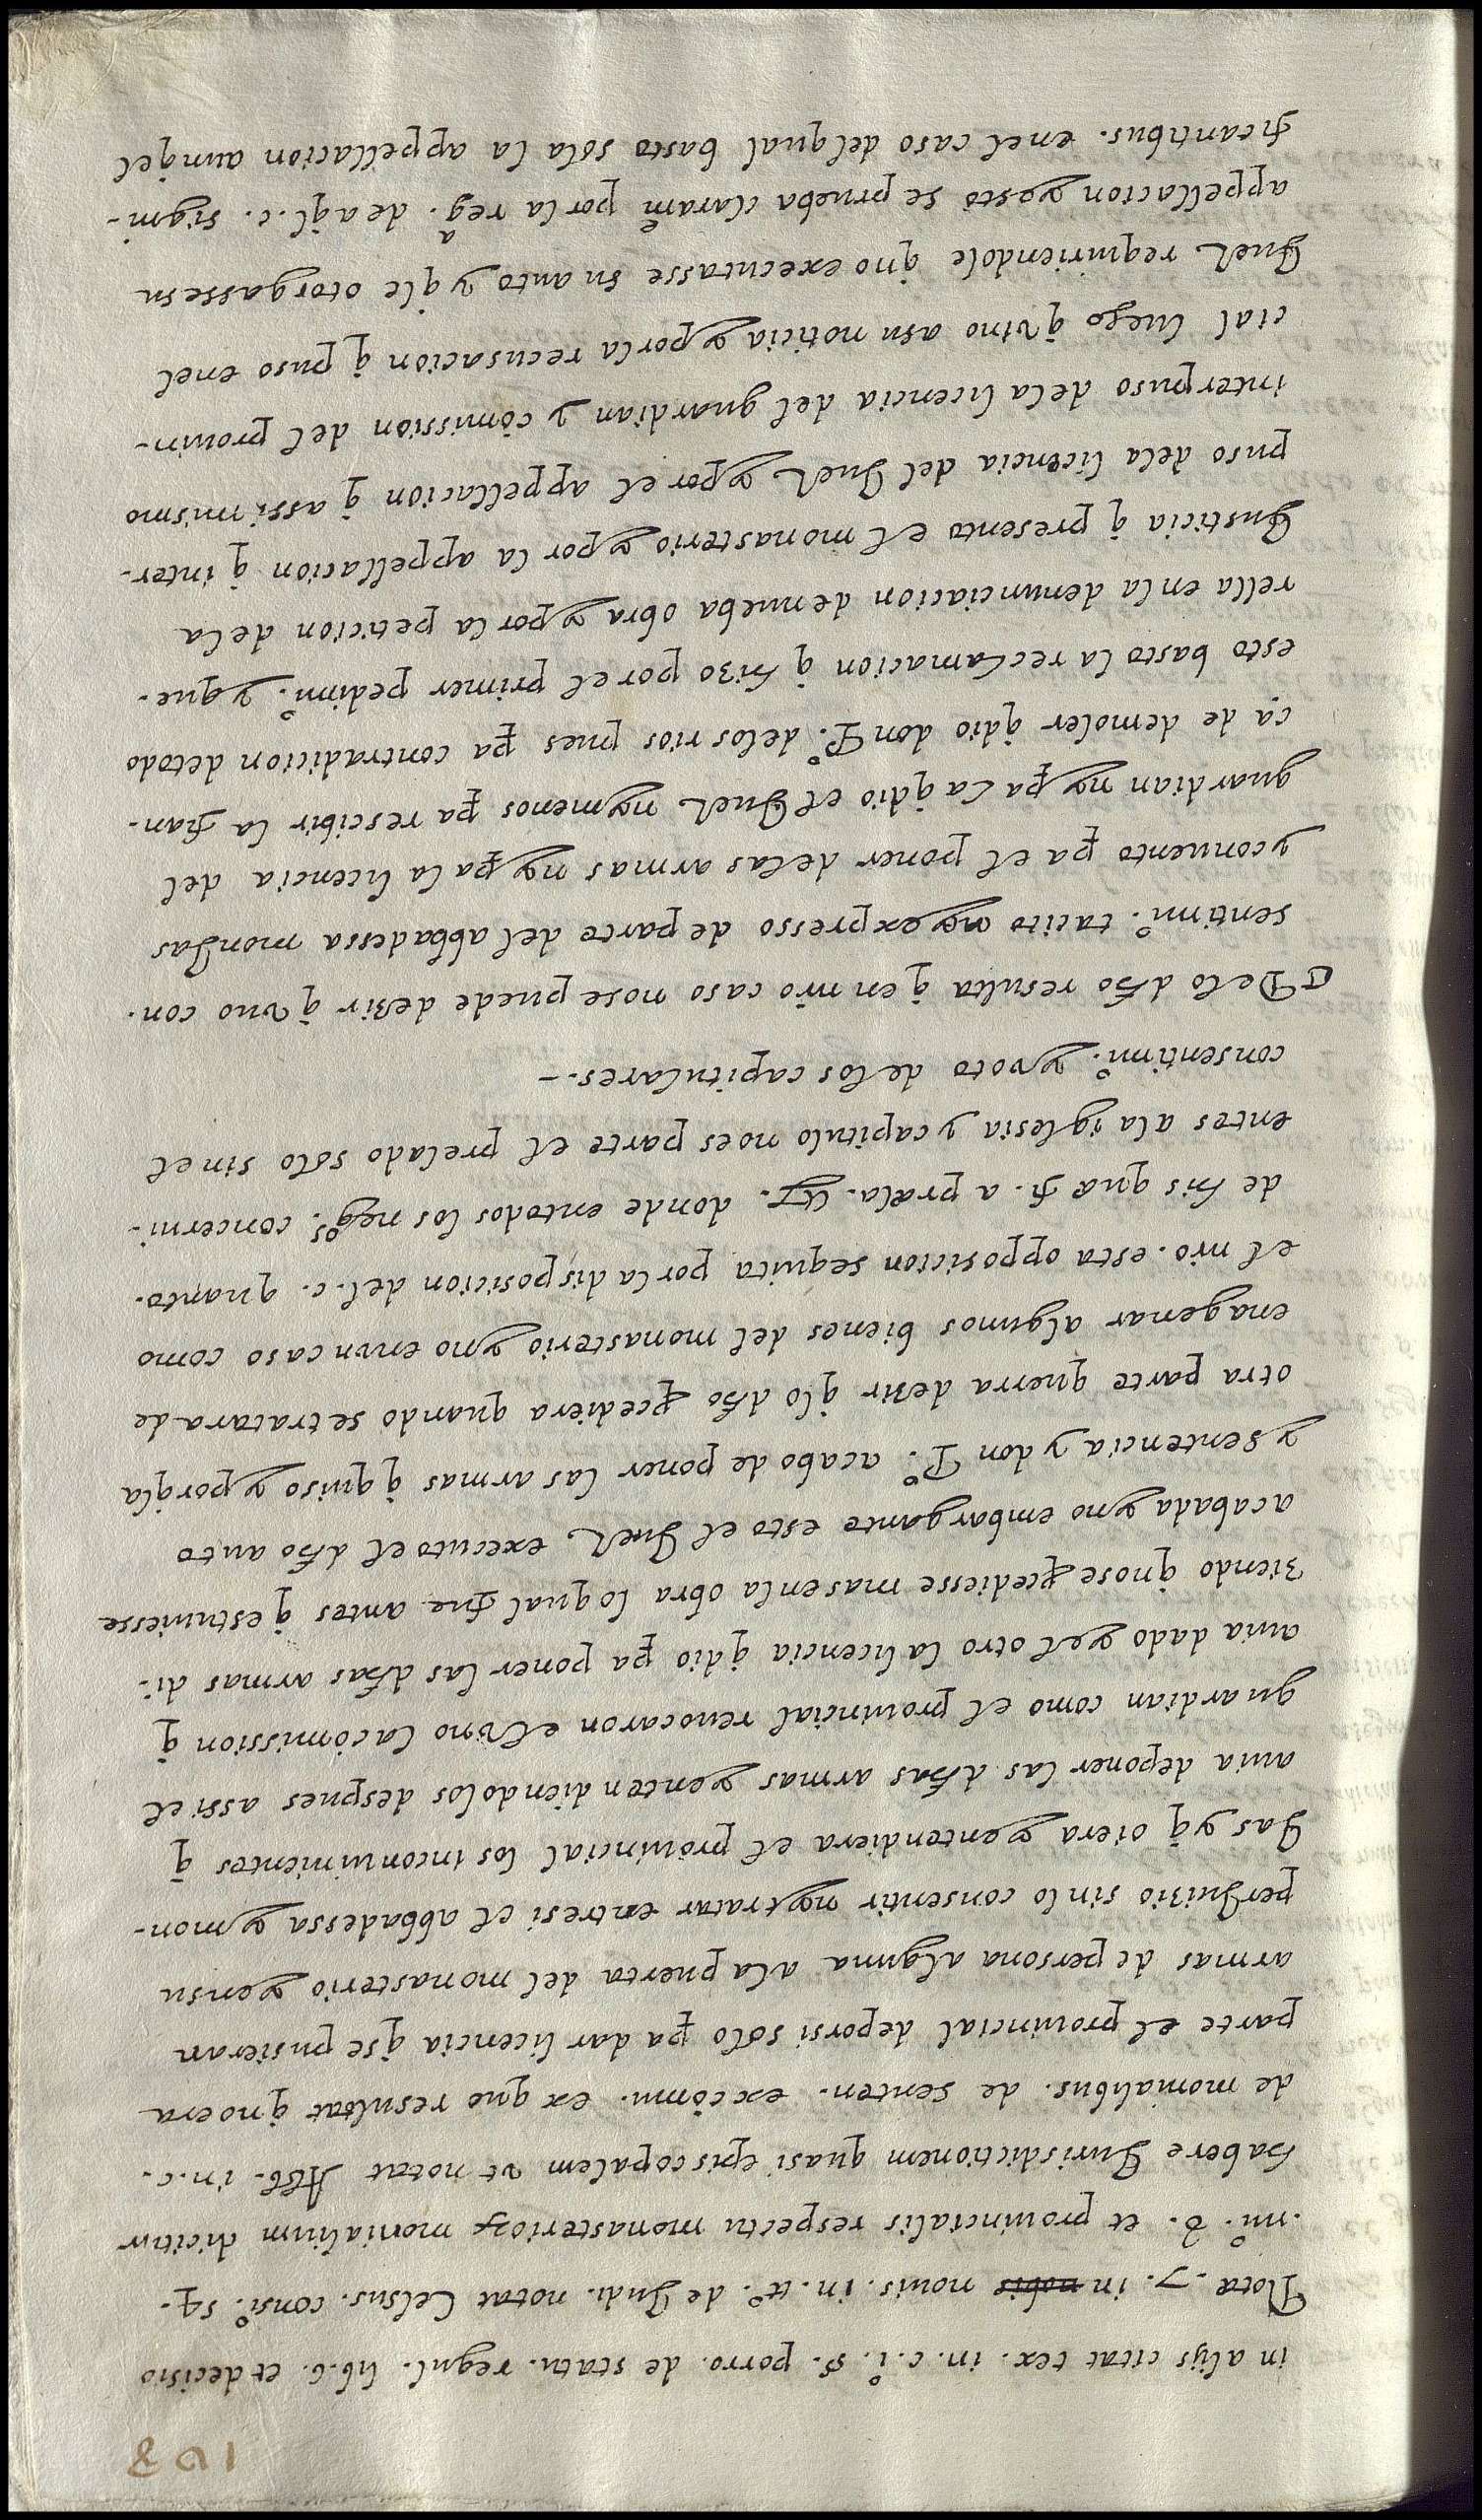 108
in alijs citat tex. in. c. i.º §. porro. de statu. regul. lib. 6. et decisio
Rotæ. 7. in nobis nouis. in. tt.º de Judi. notat Celsus. consi.º 59.
nu.º 2. et prouincialis respectu monasterioꝝ monialium dicitur
habere Jurisdictionem quasi episcopalem vt notat Abb. in. c.
de monialibus. de senten. excōmu. ex quo resultat q̄ no era
parte el prouincial deporsi solo p̱a dar licencia q̄se pusieran
armas de persona alguna ala puerta del monasterio y ensu
perJuizio sinlo consentir ny tratar entresi el abbadessa y mon-
Jas y q̄ oiera y entendiera el prouincial los inconuinientes q̄
auia deponer las dhas armas y entendiendolos despues assi el
guardian como el prouincial reuocaron el vno la cōmission q̄
auia dado y el otro la licencia q̄ dio p̱a poner las dhas armas di-
ziendo q̄nose ꝓcediesse mas enla obra lo qual fue antes q̄ estuuiesse
acabada y no embargante esto el Juez. executo el dho auto
y sentencia y don P.º acabo de poner las armas q̄ quiso y porq̄la
otra parte querra dezir q̄lo dho ꝓcediera quando se tratara de
enagenar algunos bienes del monasterio y no envn caso como
el nr̄o. esta opposicion sequita por la disposicion del. c. quanto.
de his quæ fi. a præla. &c. donde entodos los neg.ºˢ concerni-
entes ala iglesia y capitulo noes parte el prelado solo sin el
consentimi.º y voto de los capitulares.-
¶ De lo dho resulta q̄ en nr̄o caso nose puede dezir q̄ vuo con-
sentimi.º tacito ny expresso de parte del abbadessa monJas
y conuento p̱a el poner delas armas ny p̱a la licencia del
guardian ny p̱a la q̄ dio el Juez ny menos p̱a rescibir la fian-
ça de demoler q̄ dio don P.º delos rios pues p̱a contradicion detodo
esto basto la reclamacion q̄ hizo por el primer pedimi.º y que-
rella enla denunciacion denueba obra y por la peticion dela
Justicia q̄ presento el monasterio y por la appellacion q̄ inter-
puso dela licencia del Juez y por el appellacion q̄ assi mismo
interpuso dela licencia del guardian y cōmission del prouin-
cial luego q̄ vino asu noticia y por la recusacion q̄ puso enel
Juez requiriendole q̄no executasse su auto y q̄le otorgasse su
appellacion y esto se prueba claram.te por la reg.ª de aq̄l. c. signi-
ficantibus. enel caso delqual basto sola la appellacion aunq̄el